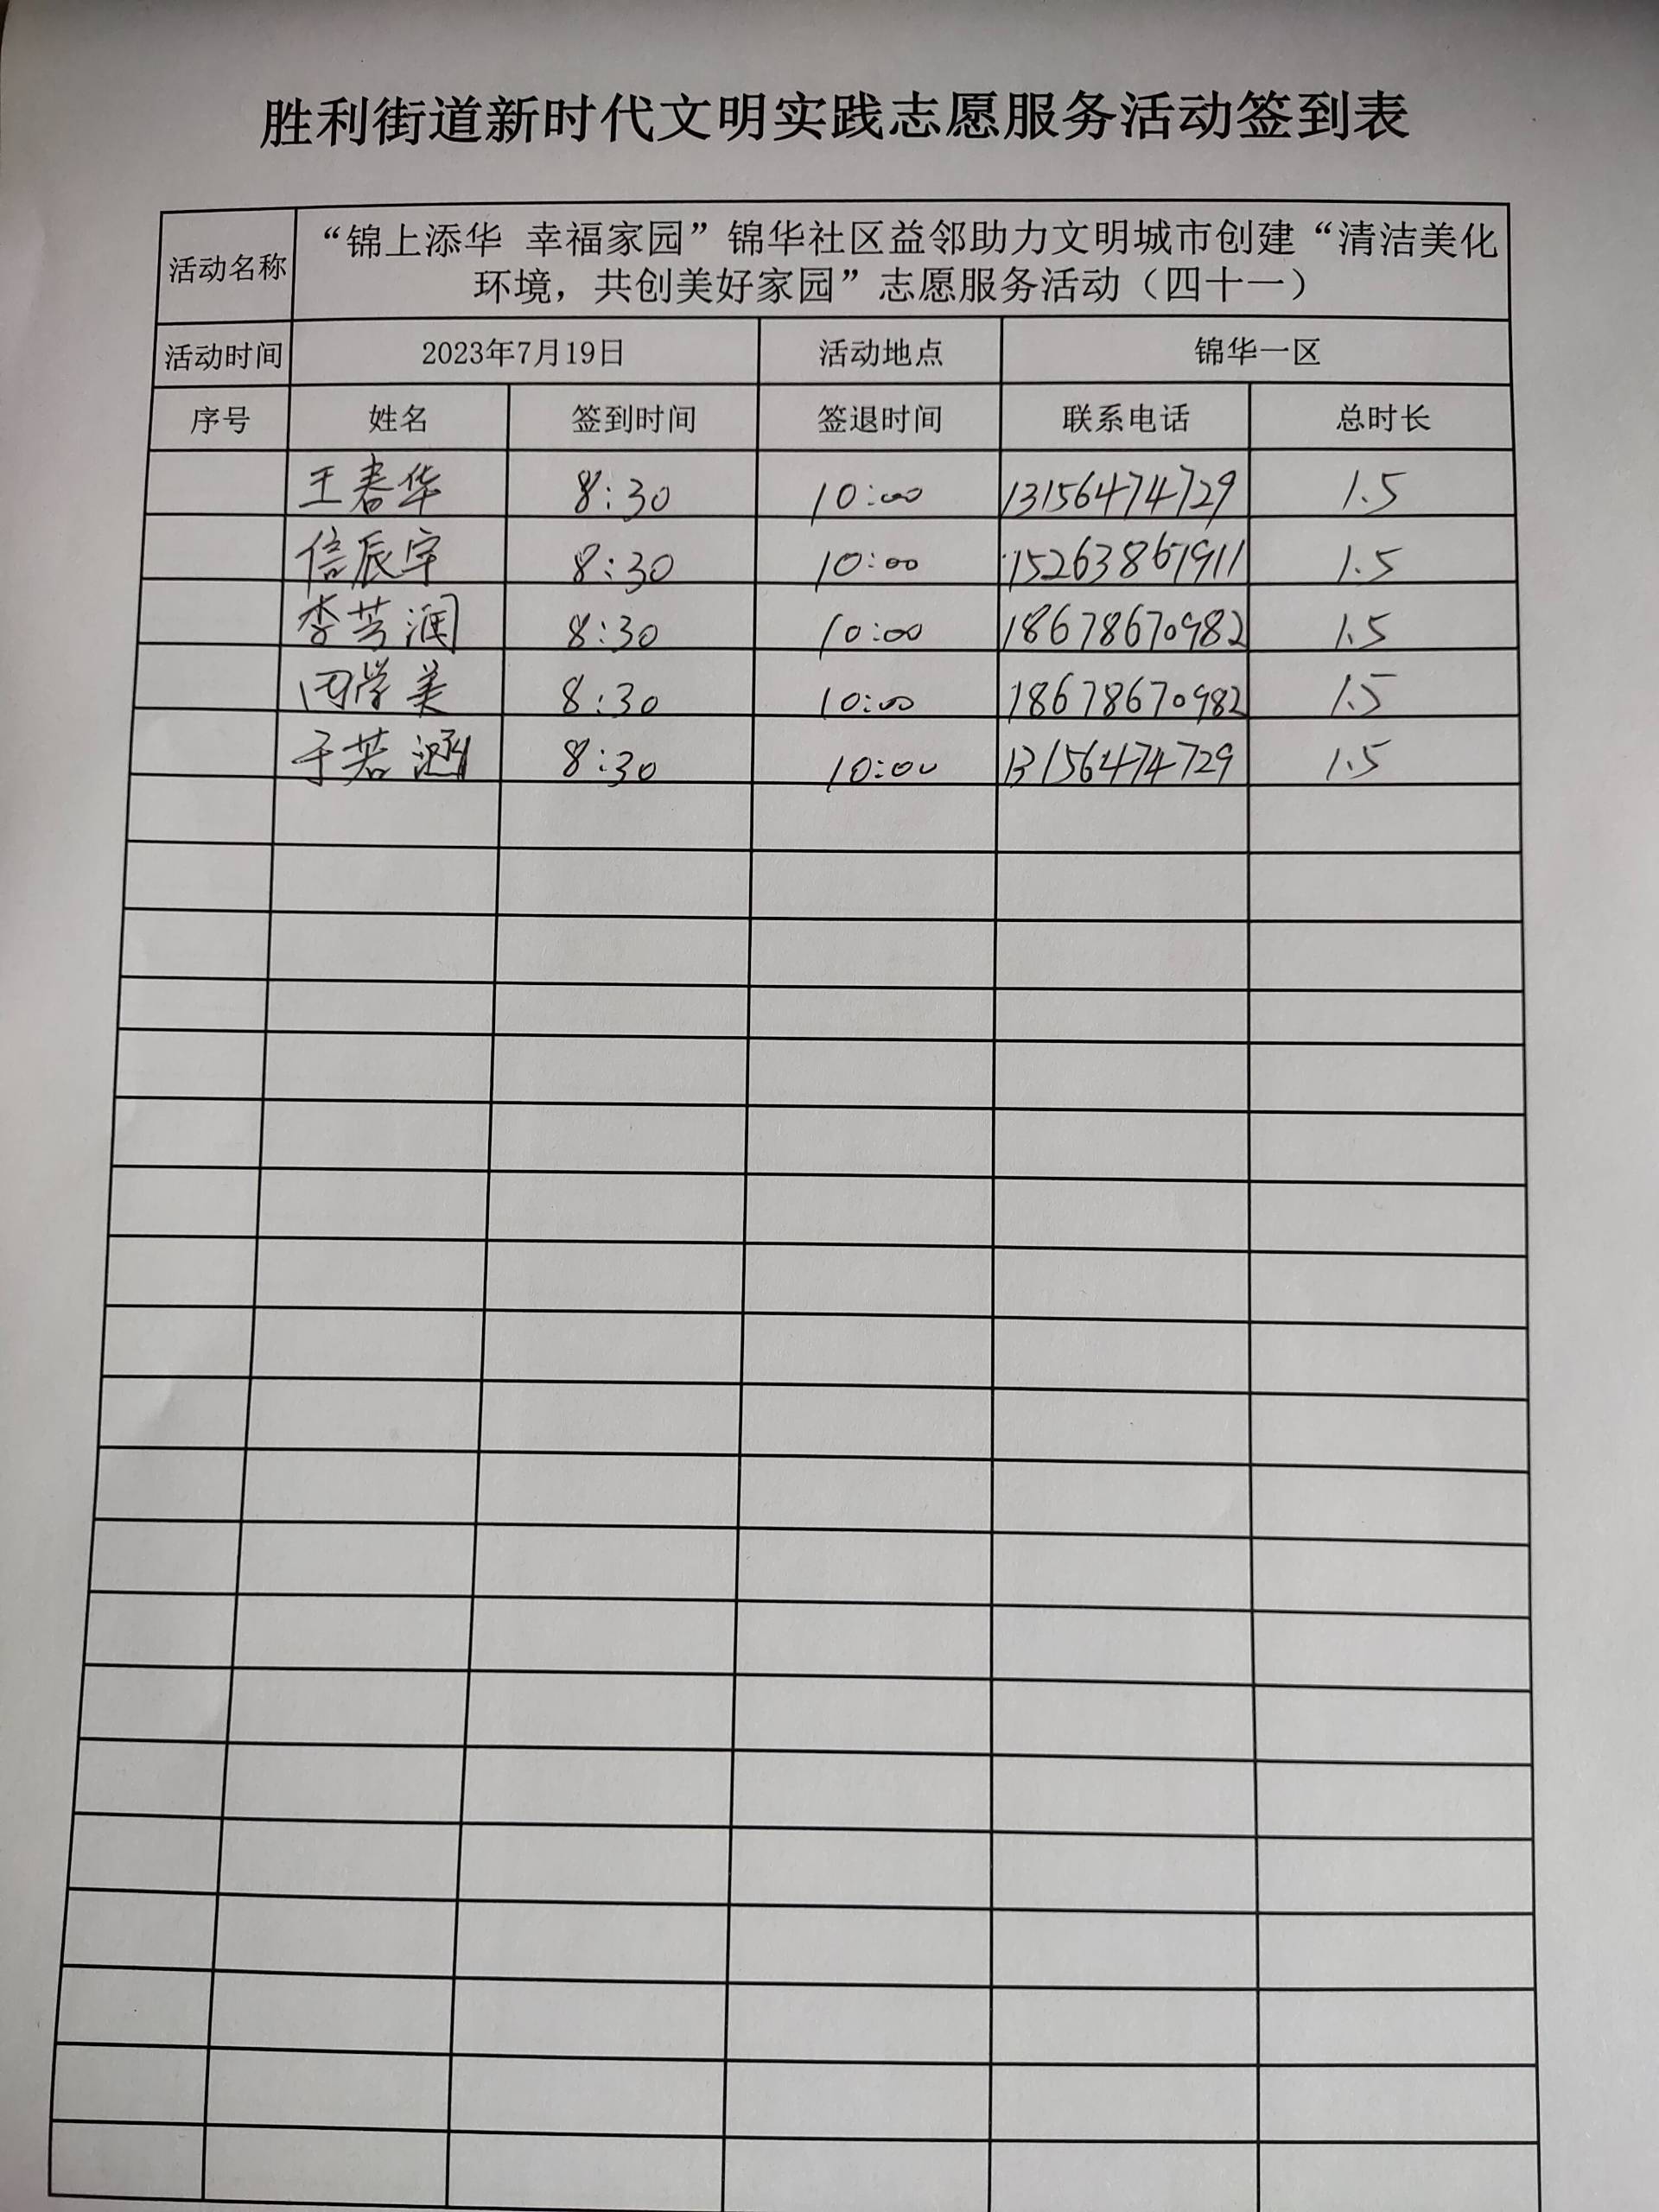 胜利街道新时代文明实践志愿服务活动签到表
活动名称
“锦上添华 幸福家园”锦华社区益邻助力文明城市创建“清洁美化
环境，共创美好家园”志愿服务活动（四十一）
活动时间 2023年7月19日 活动地点 锦华一区
序号 姓名 签到时间 签退时间 联系电话 总时长
王春华 8:30 10:00 13156474729 1.5
信辰宇 8:30 10:00 15263867911 1.5
李芸润 8:30 10:00 18678670982 1.5
田学美 8:30 10:00 18678670982 1.5
于若涵 8:30 10:00 13156474729 1.5